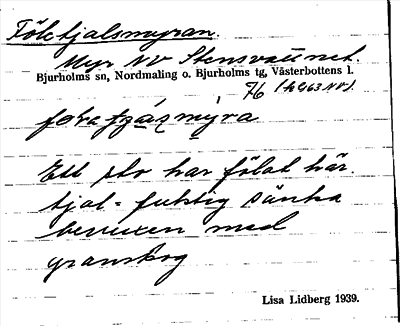 Fölktjalsmyran.
Myr NV Stensvattnet.
Bjurholms sn, Nordmaling o. Bjurholms tg, Västerbottens l.
76
myra
Ett sto har fölat här.
tjal = fuktig sänka
bevuxen med
granskog
Lisa Lidberg 1939.